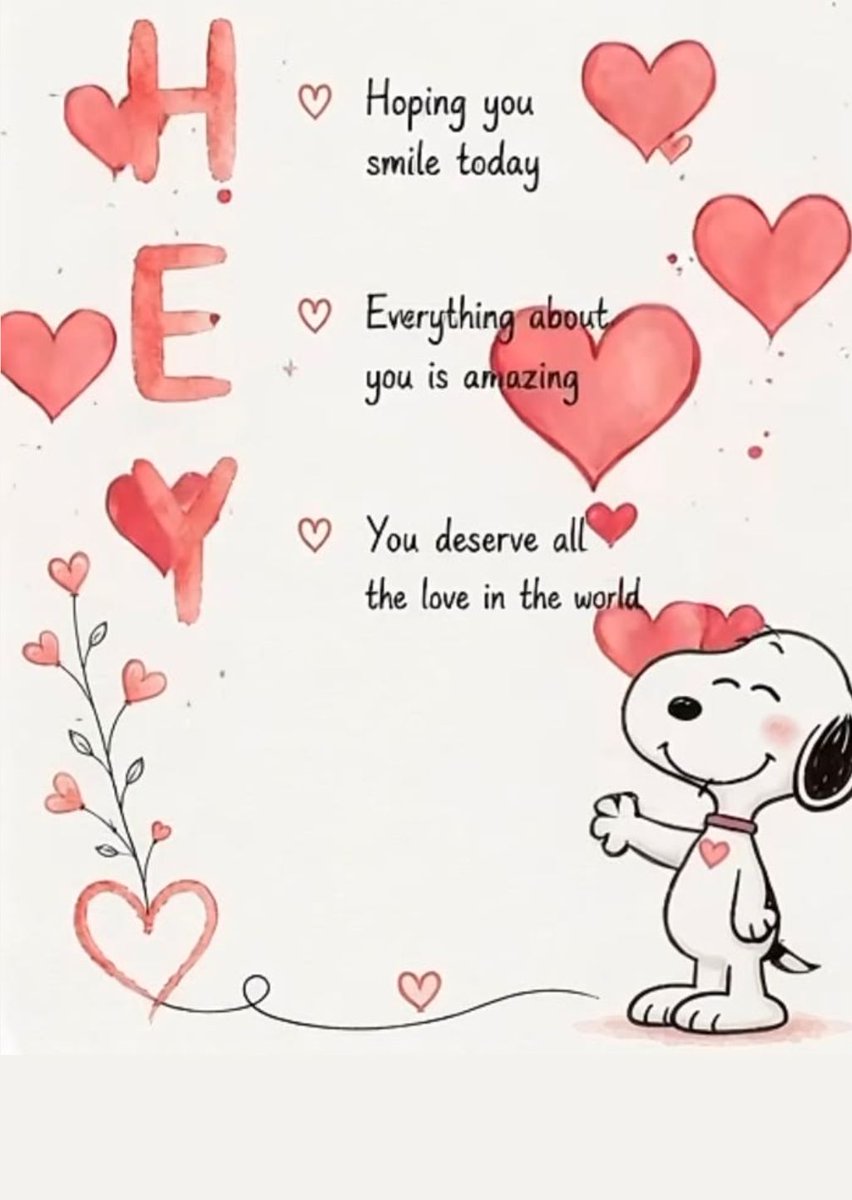 H
Hoping you
smile today
E
Everything about
you is amazing
Y
You deserve all
the love in the world